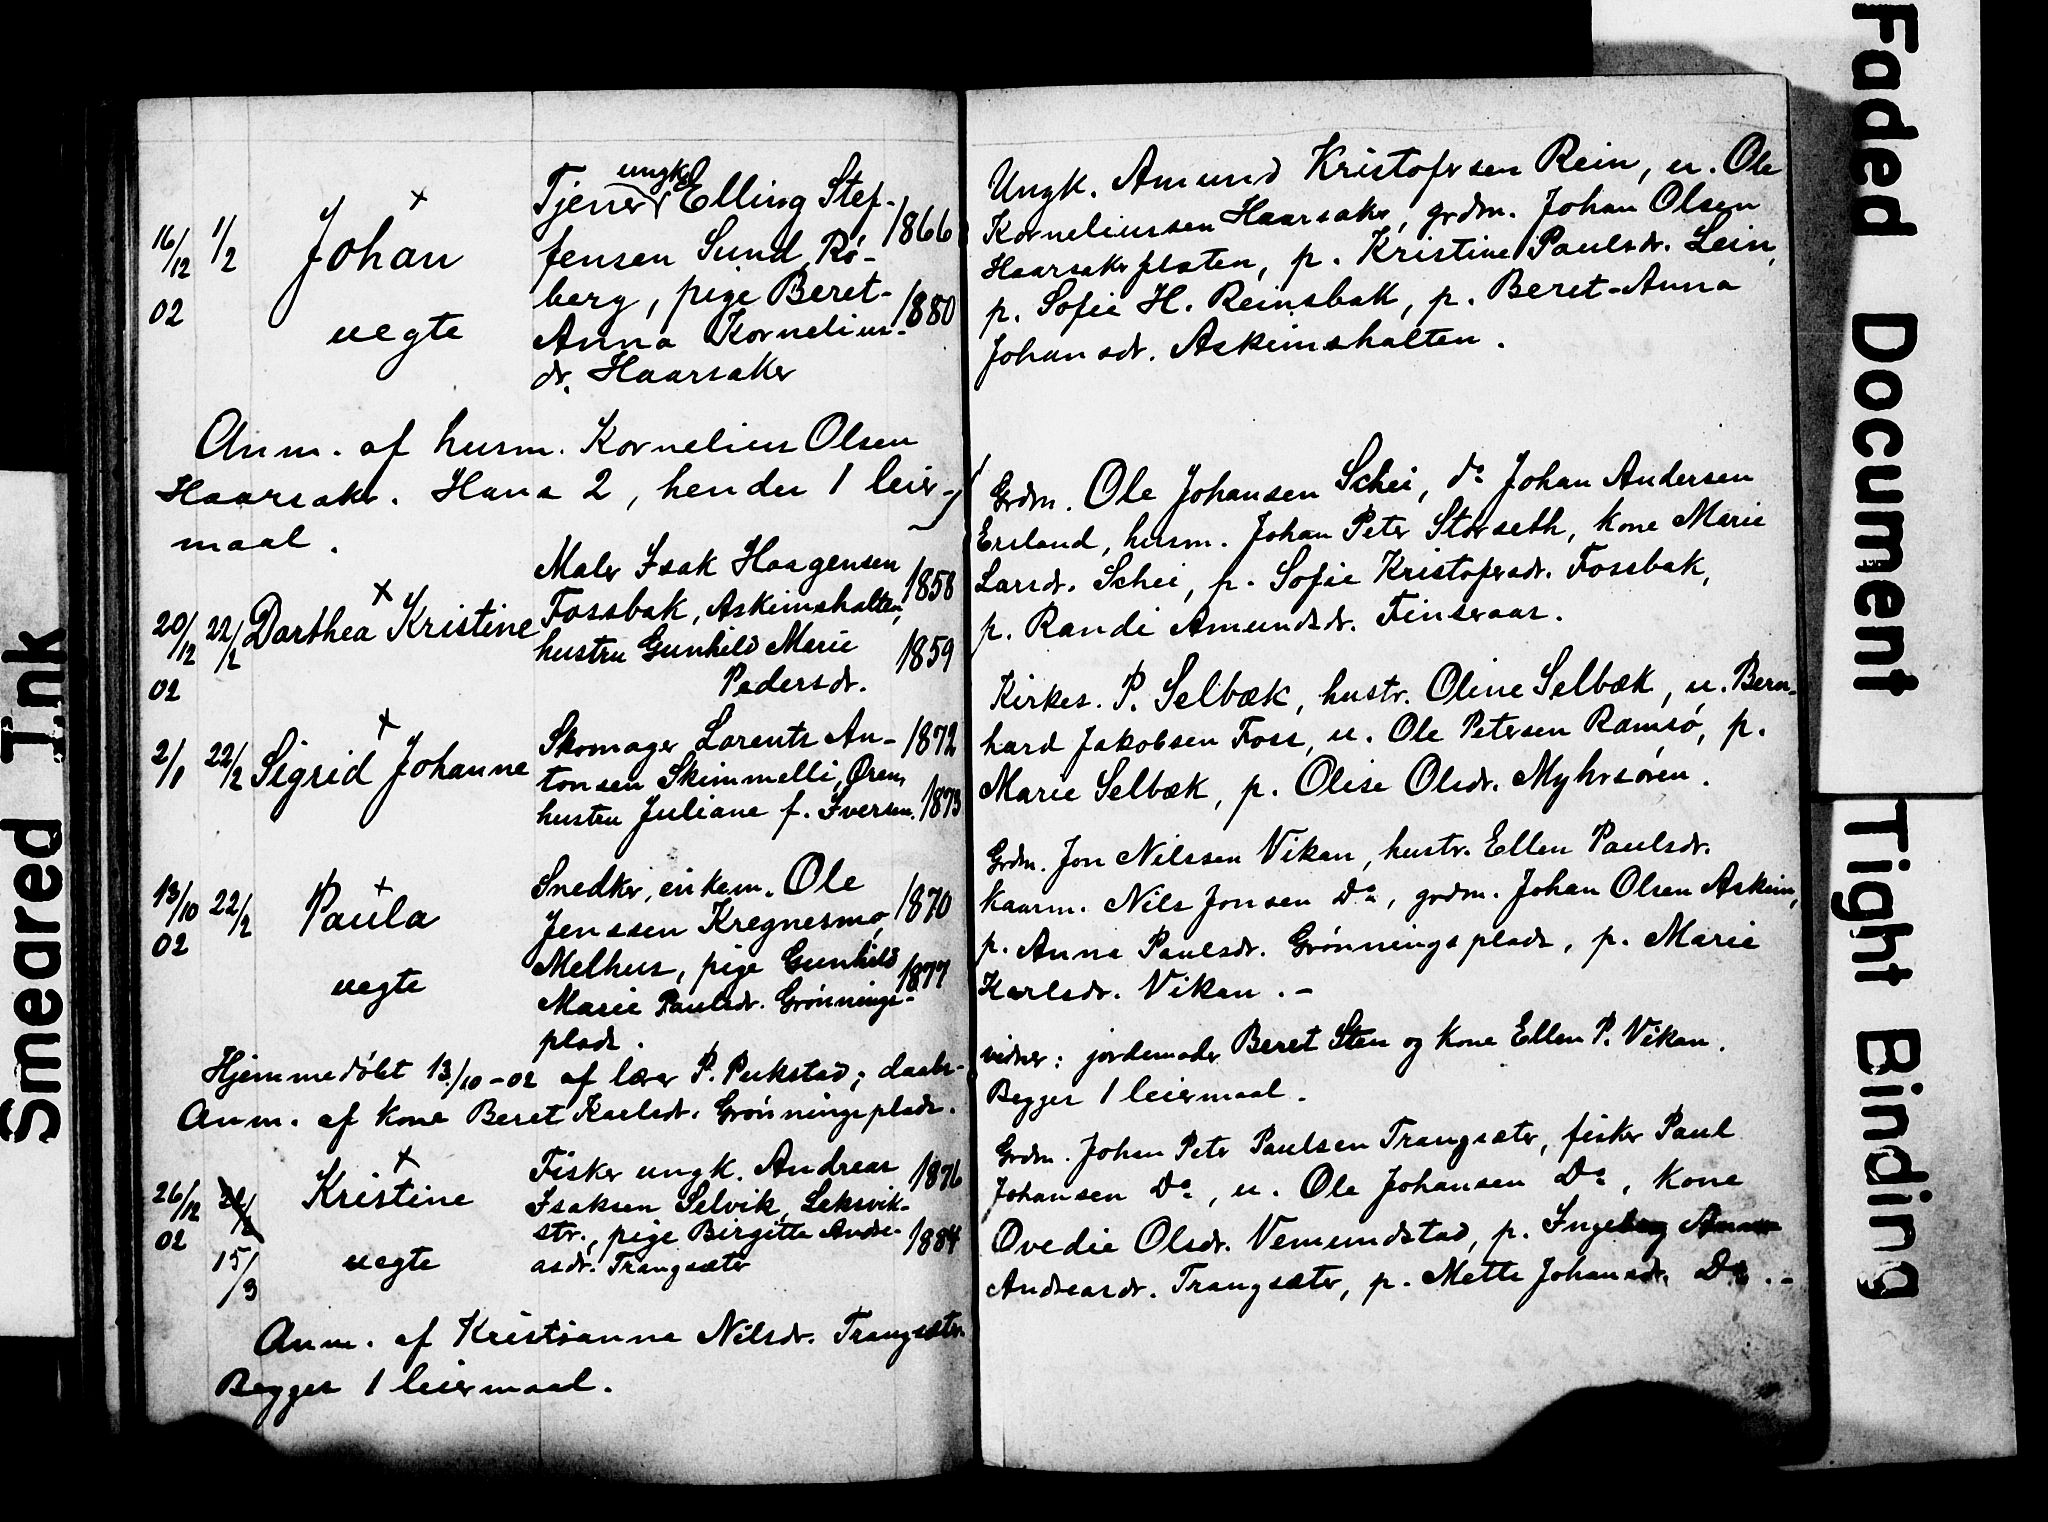 16/12 02
1/2
Johan
uegte
Tjener ungk. Elling Stef-
fensen Sund, Rø-
berg, pige Beret-
Anna Kornelius-
dr. Haarsaker
1866
1880
Anm. af husm. Kornelius Olsen
Haarsakr. Hans 2, hendes 1 leier-
maal.
20/12 02
22/2
Dorthea Kristine
Maler Isak Haagensen
Fossbak, Askimshalten,
hustru Gunhild Marie
Pedersdr.
1858
1859
2/1
22/2
Sigrid Johanne
Skomager Lorents An-
tonsen Skimmelli, Øren,
hustru Juliane f. Iversen.
1872
1873
13/10 02
22/2
Paula
uegte
Snedker, enkem. Ole
Jenssen Kregnesmo,
Melhus, pige Gunhild
Marie Paulsdr. Grønnings-
plads.
1870
1877
Hjemmedøbt 13/10-02 af lærer P. Pukstad; daabs-
Anm. af kone Beret Karlsdr. Grønningsplads.
26/12 02
22/2
15/3
Kristine
uegte
Fisker ungk. Andreas
Isaksen Selvik, Leksvik-
str., pige Birgitte Andre-
asdr. Trangsæter
1876
1884
Anm. af Kristianna Nilsdr. Trangsætr.
Begges 1 leiermaal.
Ungk. Amund Kristofersen Rein, u. Ole
Korneliussen Haarsaker, grdm. Johan Olsen
Haarsakerplaten, p. Kristine Paulsdr. Lein,
p. Sofie H. Reinsbak, p. Beret-Anna
Johansdr. Askimshalten.
Grdm. Ole Johansen Schei, do Johan Andersen
Ersland, husm. Johan Peter Storseth, kone Marie
Larsdr. Schei, p. Sofie Kristofersdr. Fossbak,
p. Randi Amundsdr. Finseraas.
Kirkes. P. Selbæk, hustr. Oline Selbæk, u. Bern-
hard Jakobsen Foss, u. Ole Petersen Ramsø, p.
Marie Selbæk, p. Olise Olsdr. Myhrsøren.
Grdm. Jon Nilssen Vikan, hustr. Ellen Paulsdr.
kaarm. Nils Jonsen Do, grdm. Johan Olsen Askim,
p. Anna Paulsdr. Grønningsplads, p. Marie
Karlsdr. Vikan.-
vidner: jordemoder Beret Sten og kone Ellen P. Vikan.
Begges 1 leiermaal.
Grdm. Johan Peter Paulsen Trangsæter, fisker Paul
Johansen Do, u. Ole Johansen Do, kone
Ovedie Olsdr. Vemundstad, p. Ingeborg Anna
Andreasdr. Trangsæter, p. Mette Johansdr. Do.-
Smeared Ink
Faded Document
Tight Binding